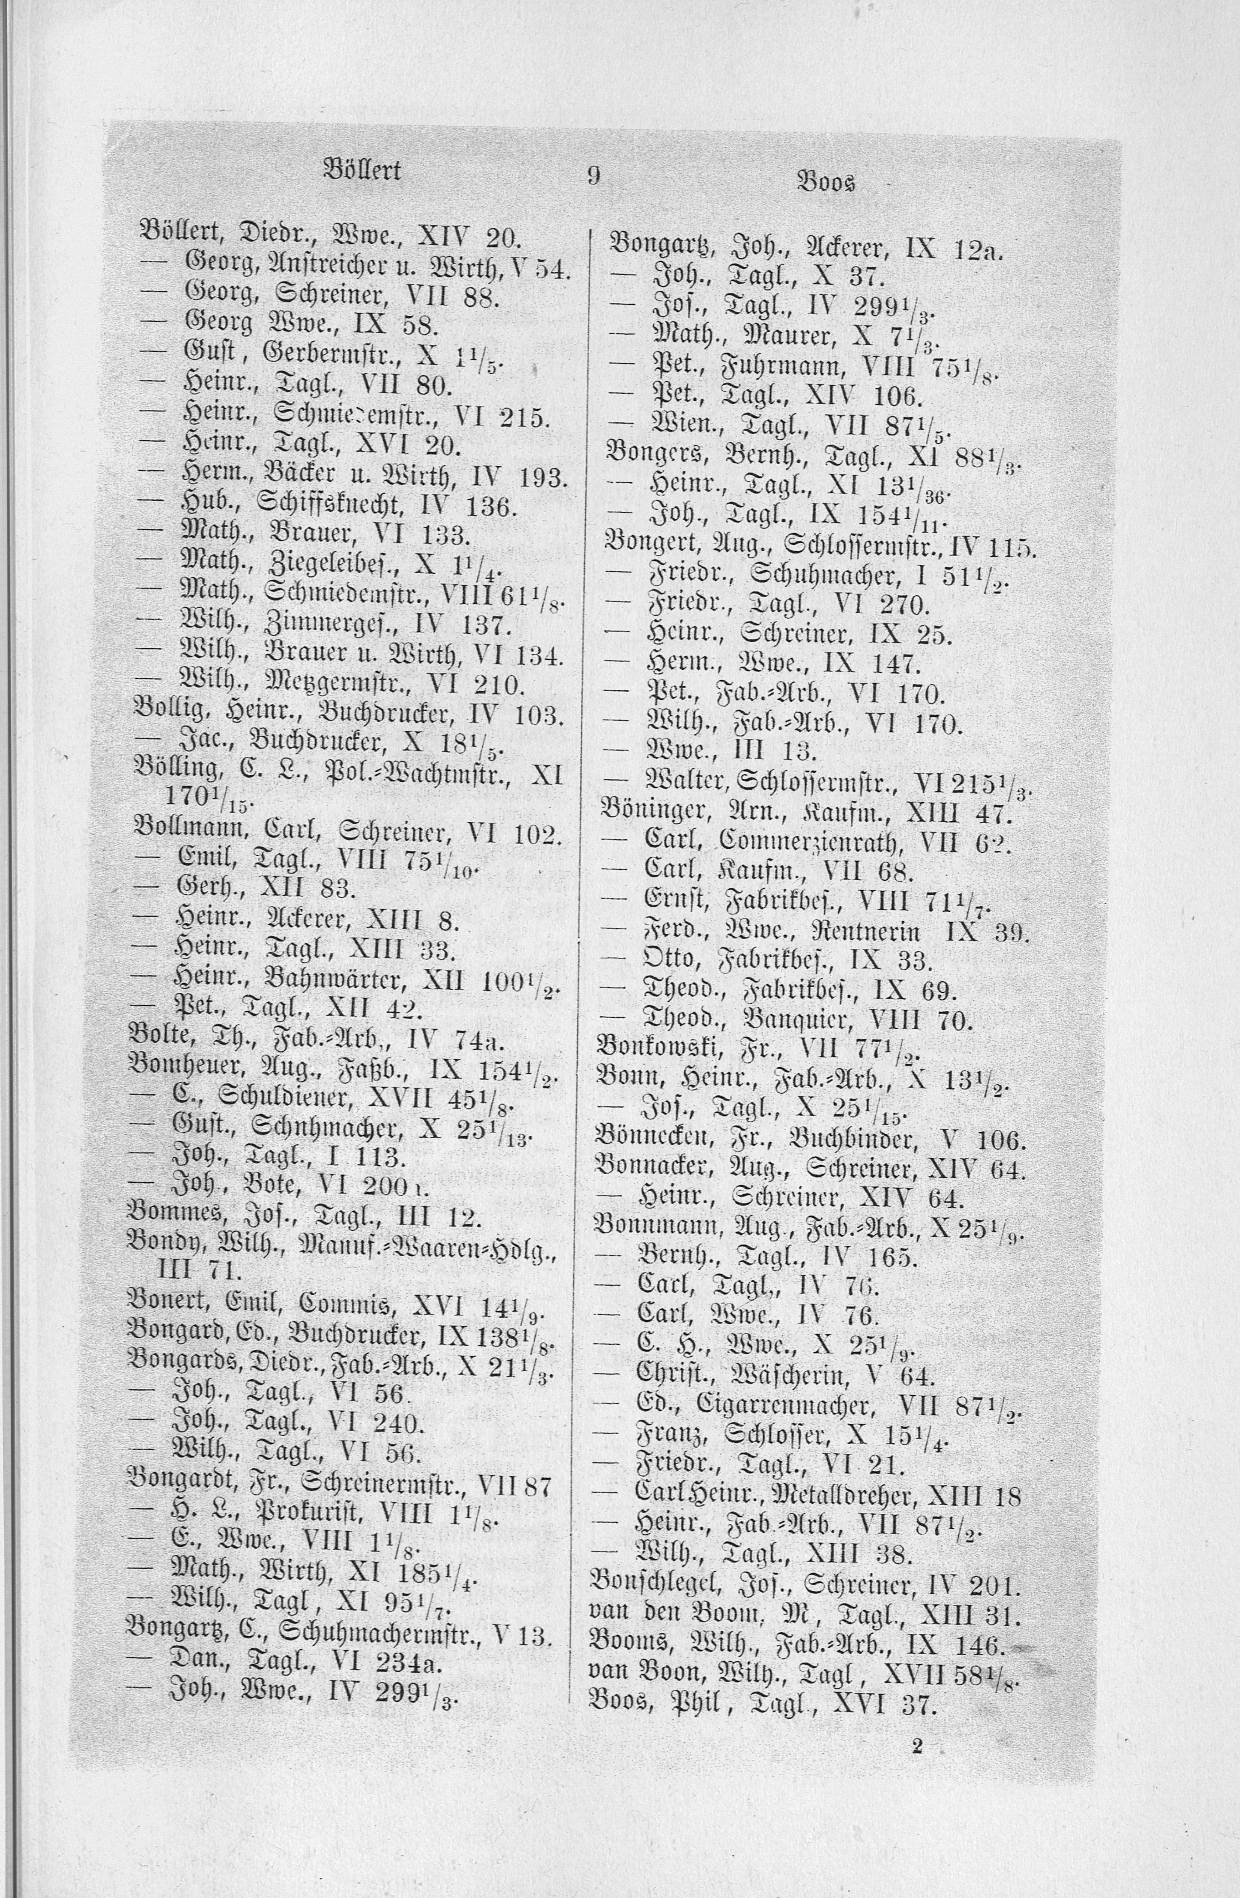 Böllert
9
Boos
Böllert, Diedr., Wwe., XIV 20.
— Georg, Anstreicher u. Wirth, V 54.
— Georg, Schreiner, VII 88.
— Georg Wwe., IX 58.
— Gust, Gerbermstr., X 1 1/5.
— Heinr., Tagl., VII 80.
— Heinr., Schmiedemstr., VI 215.
— Heinr., Tagl., XVI 20.
— Herm., Bäcker u. Wirth, IV 193.
— Hub., Schiffsknecht, IV 136.
— Math., Brauer, VI 133.
— Math., Ziegeleibes., X 1 1/4.
— Math., Schmiedemstr., VIII 61 1/8.
— Wilh., Zimmerges., IV 137.
— Wilh., Brauer u. Wirth, VI 134.
— Wilh., Metzgermstr., VI 210.
Bollig, Heinr., Buchdrucker, IV 103.
— Jac., Buchdrucker, X 18 1/5.
Bölling, C. L., Pol.-Wachtmstr., XI
170 1/15.
Bollmann, Carl, Schreiner, VI 102.
— Emil, Tagl., VIII 75 1/10.
— Gerh., XII 83.
— Heinr., Ackerer, XIII 8.
— Heinr., Tagl., XIII 33.
— Heinr., Bahnwärter, XII 100 1/2.
— Pet., Tagl., XII 42.
Bolte, Th., Fab.-Arb., IV 74a.
Bomheuer, Aug., Faßb., IX 154 1/2.
— C., Schuldiener, XVII 45 1/8.
— Gust., Schuhmacher, X 25 1/13.
— Joh., Tagl., I 113.
— Joh., Bote, VI 200
Bommes, Jos., Tagl., III 12.
Bondy, Wilh., Manuf.-Waaren-Hdlg.,
III 71.
Bonert, Emil, Commis, XVI 14 1/9.
Bongard, Ed., Buchdrucker, IX 138 1/8.
Bongards, Diedr., Fab.-Arb., X 21 1/3.
— Joh., Tagl., VI 56.
— Joh., Tagl., VI 240.
— Wilh., Tagl., VI 56.
Bongardt, Fr., Schreinermstr., VII 87
— H. L., Prokurist, VIII 1 1/8.
— E., Wwe., VIII 1 1/8.
— Math., Wirth, XI 185 1/4.
— Wilh., Tagl, XI 95 1/7.
Bongartz, C., Schuhmachermstr., V 13.
— Dan., Tagl., VI 234a.
— Joh., Wwe., IV 299 1/3.
Bongartz, Joh., Ackerer, IX 12a.
— Joh., Tagl., X 37.
— Jos., Tagl., IV 299 1/3.
— Math., Maurer, X 7 1/3.
— Pet., Fuhrmann, VIII 75 1/8.
— Pet., Tagl., XIV 106.
— Wien., Tagl., VII 87 1/5.
Bongers, Bernh., Tagl., XI 88 1/3.
— Heinr., Tagl., XI 13 1/36.
— Joh., Tagl., IX 154 1/11.
Bongert, Aug., Schlossermstr., IV 115.
— Friedr., Schuhmacher, I 51 1/2.
— Friedr., Tagl., VI 270.
— Heinr., Schreiner, IX 25.
— Herm., Wwe., IX 147.
— Pet., Fab.-Arb., VI 170.
— Wilh., Fab.-Arb., VI 170.
— Wwe., III 13.
— Walter, Schlossermstr., VI 215 1/3.
Böninger, Arn., Kaufm., XIII 47.
— Carl, Commerzienrath, VII 62.
— Carl, Kaufm., VII 68.
— Ernst, Fabrikbes., VIII 71 1/7.
— Ferd., Wwe., Rentnerin IX 39.
— Otto, Fabrikbes., IX 33.
— Theod., Fabrikbes., IX 69.
— Theod., Banquier, VIII 70.
Bonkowski, Fr., VII 77 1/2.
Bonn, Heinr., Fab.-Arb., X 13 1/2.
— Jos., Tagl., X 25 1/15.
Bönnecken, Fr., Buchbinder, V 106.
Bonnacker, Aug., Schreiner, XIV 64.
— Heinr., Schreiner, XIV 64.
Bonnmann, Aug., Fab.-Arb., X 25 1/9.
— Bernh., Tagl., IV 165.
— Carl, Tagl., IV 76.
— Carl, Wwe., IV 76.
— C. H., Wwe., X 25 1/9.
— Christ., Wäscherin, V 64.
— Ed., Cigarrenmacher, VII 87 1/2.
— Franz, Schlosser, X 15 1/4.
— Friedr., Tagl., VI 21.
— Carl Heinr., Metalldreher, XIII 18
— Heinr., Fab.-Arb., VII 87 1/2.
— Wilh., Tagl., XIII 38.
Bonschlegel, Jos., Schreiner, IV 201.
van den Boom, M, Tagl., XIII 31.
Booms, Wilh., Fab.-Arb., IX 146.
van Boon, Wilh., Tagl, XVII 58 1/8.
Boos, Phil, Tagl., XVI 37.
2